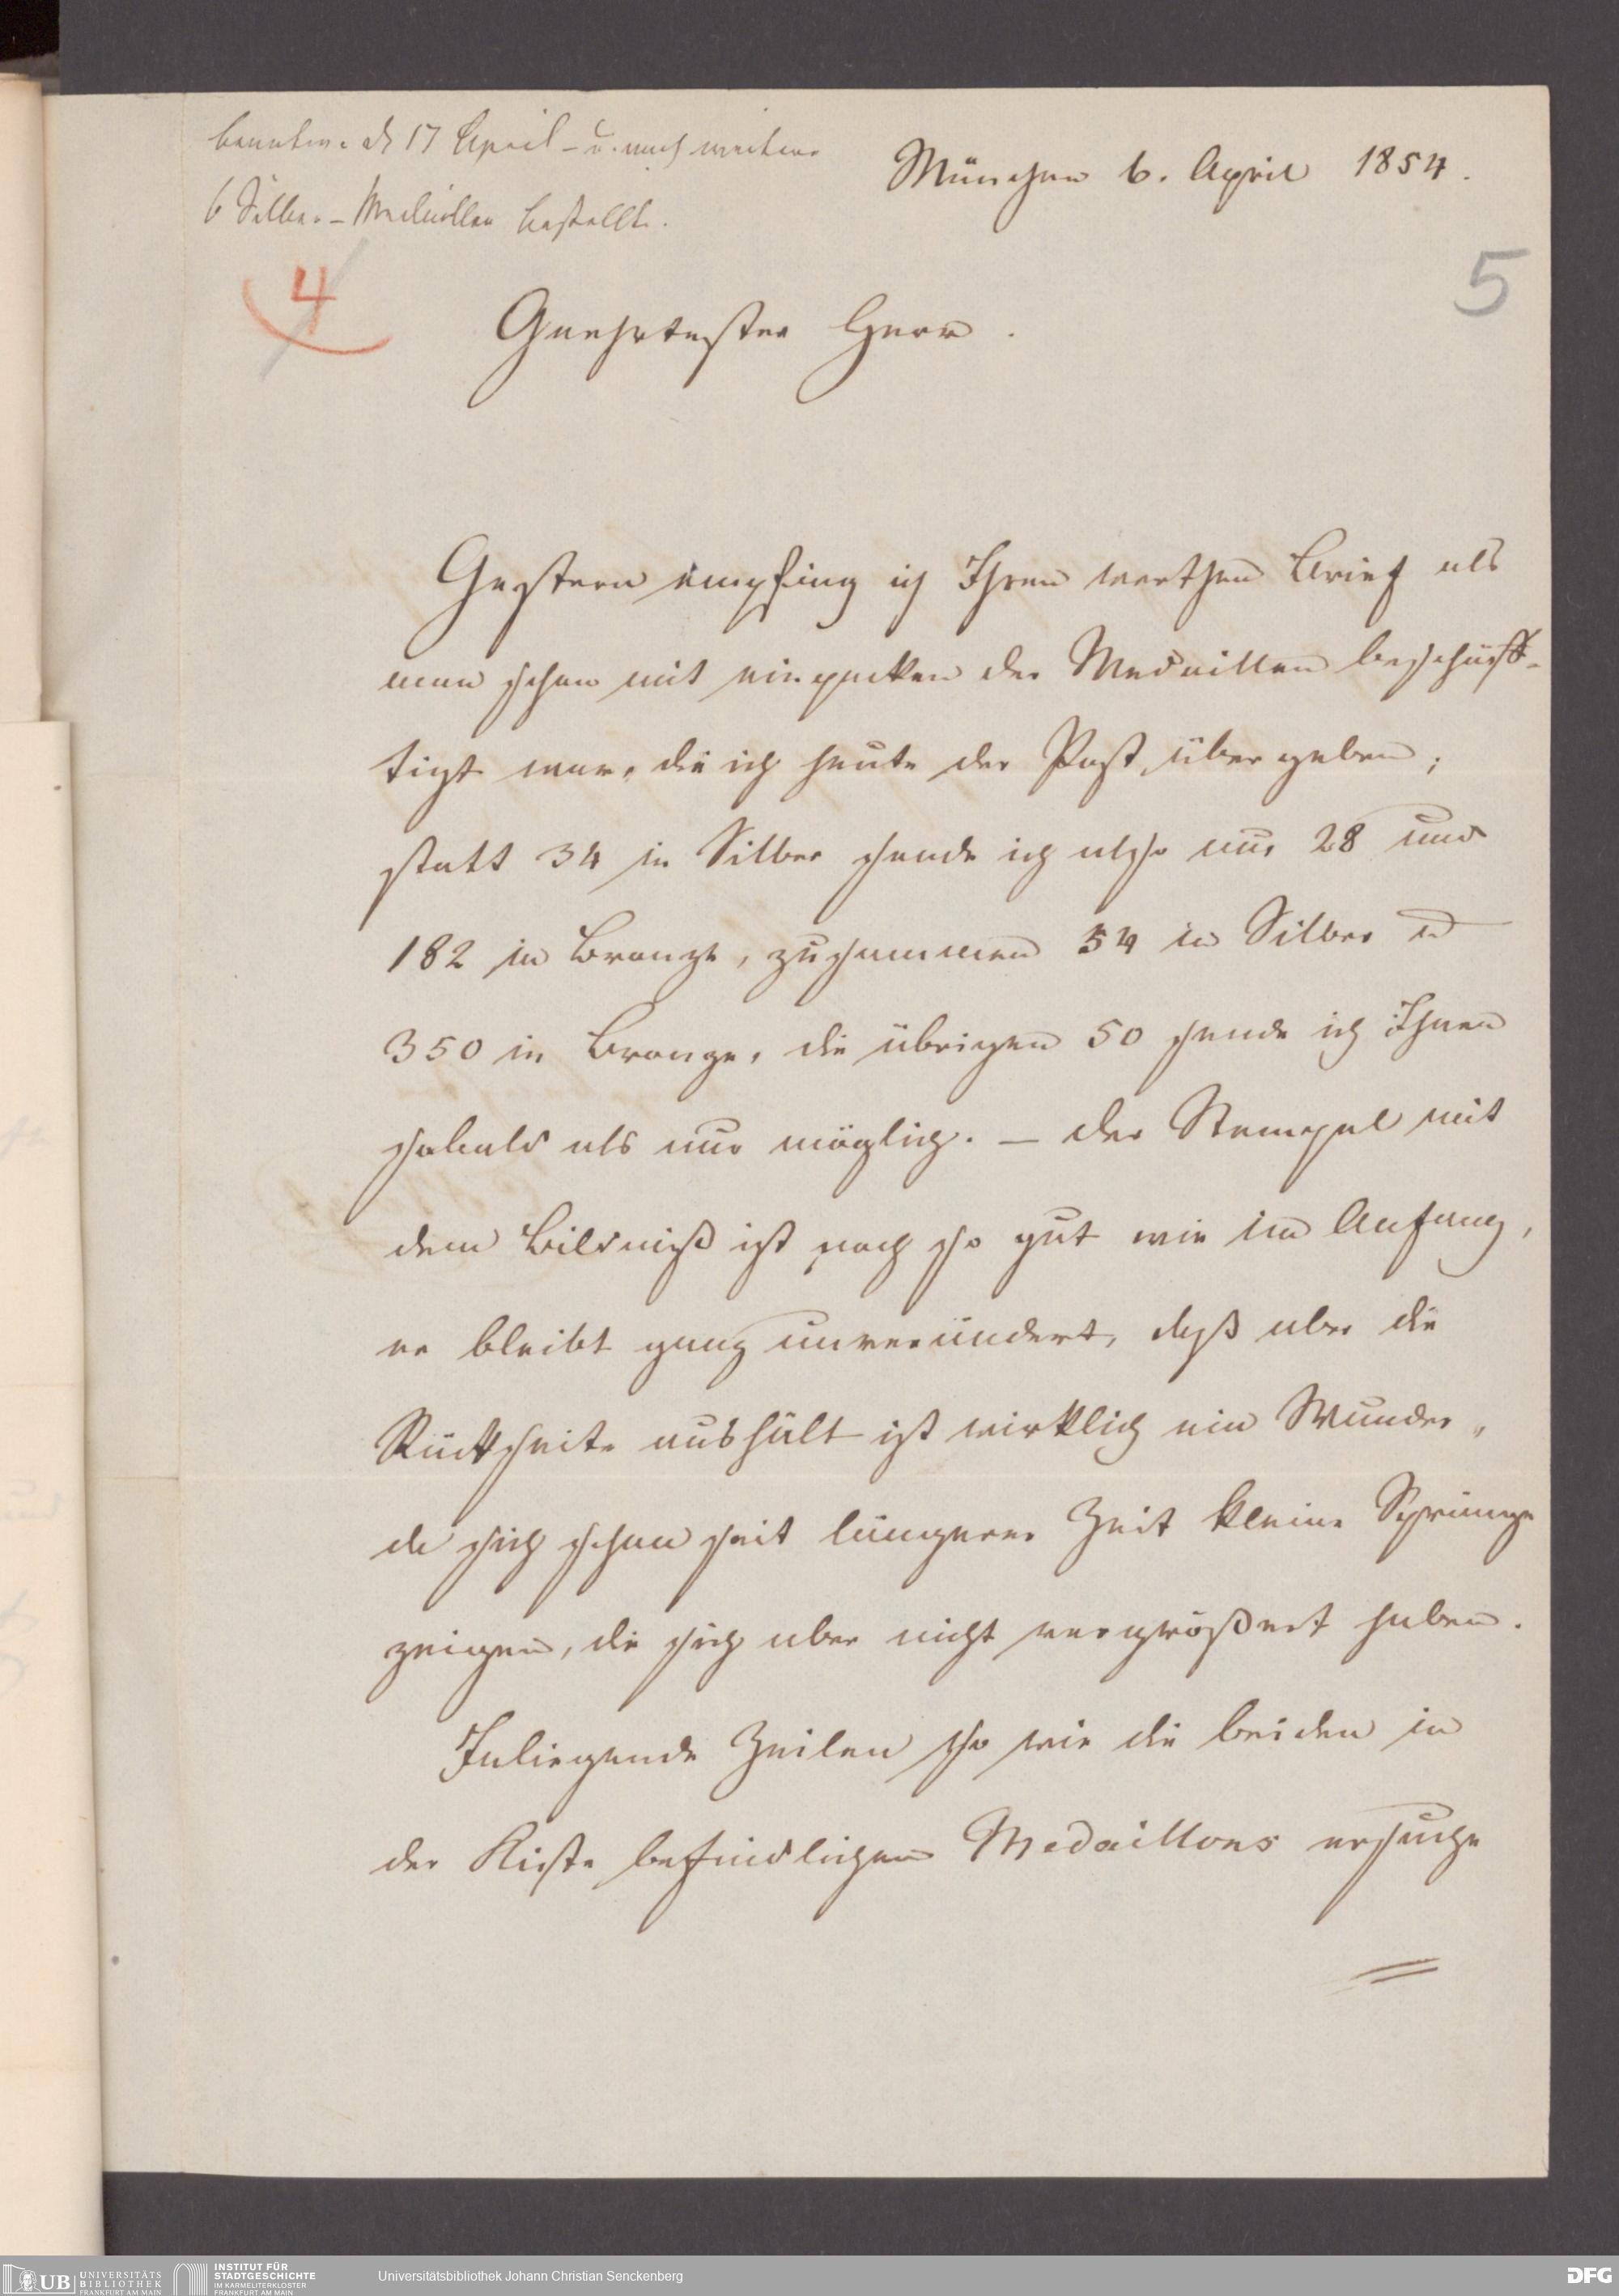 beantw. d 17 April – u. noch weitere
6 Silber-Medaillen bestellt.
München 6. April 1854.
4
5
Geehrtester Herr.
Gestern empfing ich Ihren werthen Brief als
man schon mit einpacken der Medaillen beschäff-
tigt war, die ich heute der Post übergeben;
statt 34 in Silber sende ich also nur 28 und
182 in Bronze, zusammen 54 in Silber u
350 in Bronze, die übrigen 50 sende ich Ihnen
sobald als nur möglich. – der Stempel mit
dem Bildniß ist noch so gut wie im Anfang,
er bleibt ganz unverändert, daß aber die
Rückseite aushält ist wirklich ein Wunder,
da sich schon seit längerer Zeit kleine Sprünge
zeigen, die sich aber nicht vergrößert haben.
Inliegende Zeilen so wie die beiden in
der Kiste befindlichen Medaillons ersuche
UB UNIVERSITÄTS BIBLIOTHEK FRANKFURT AM MAIN
INSTITUT FÜR STADTGESCHICHTE IM KARMELITERKLOSTER FRANKFURT AM MAIN
Universitätsbibliothek Johann Christian Senckenberg
DFG